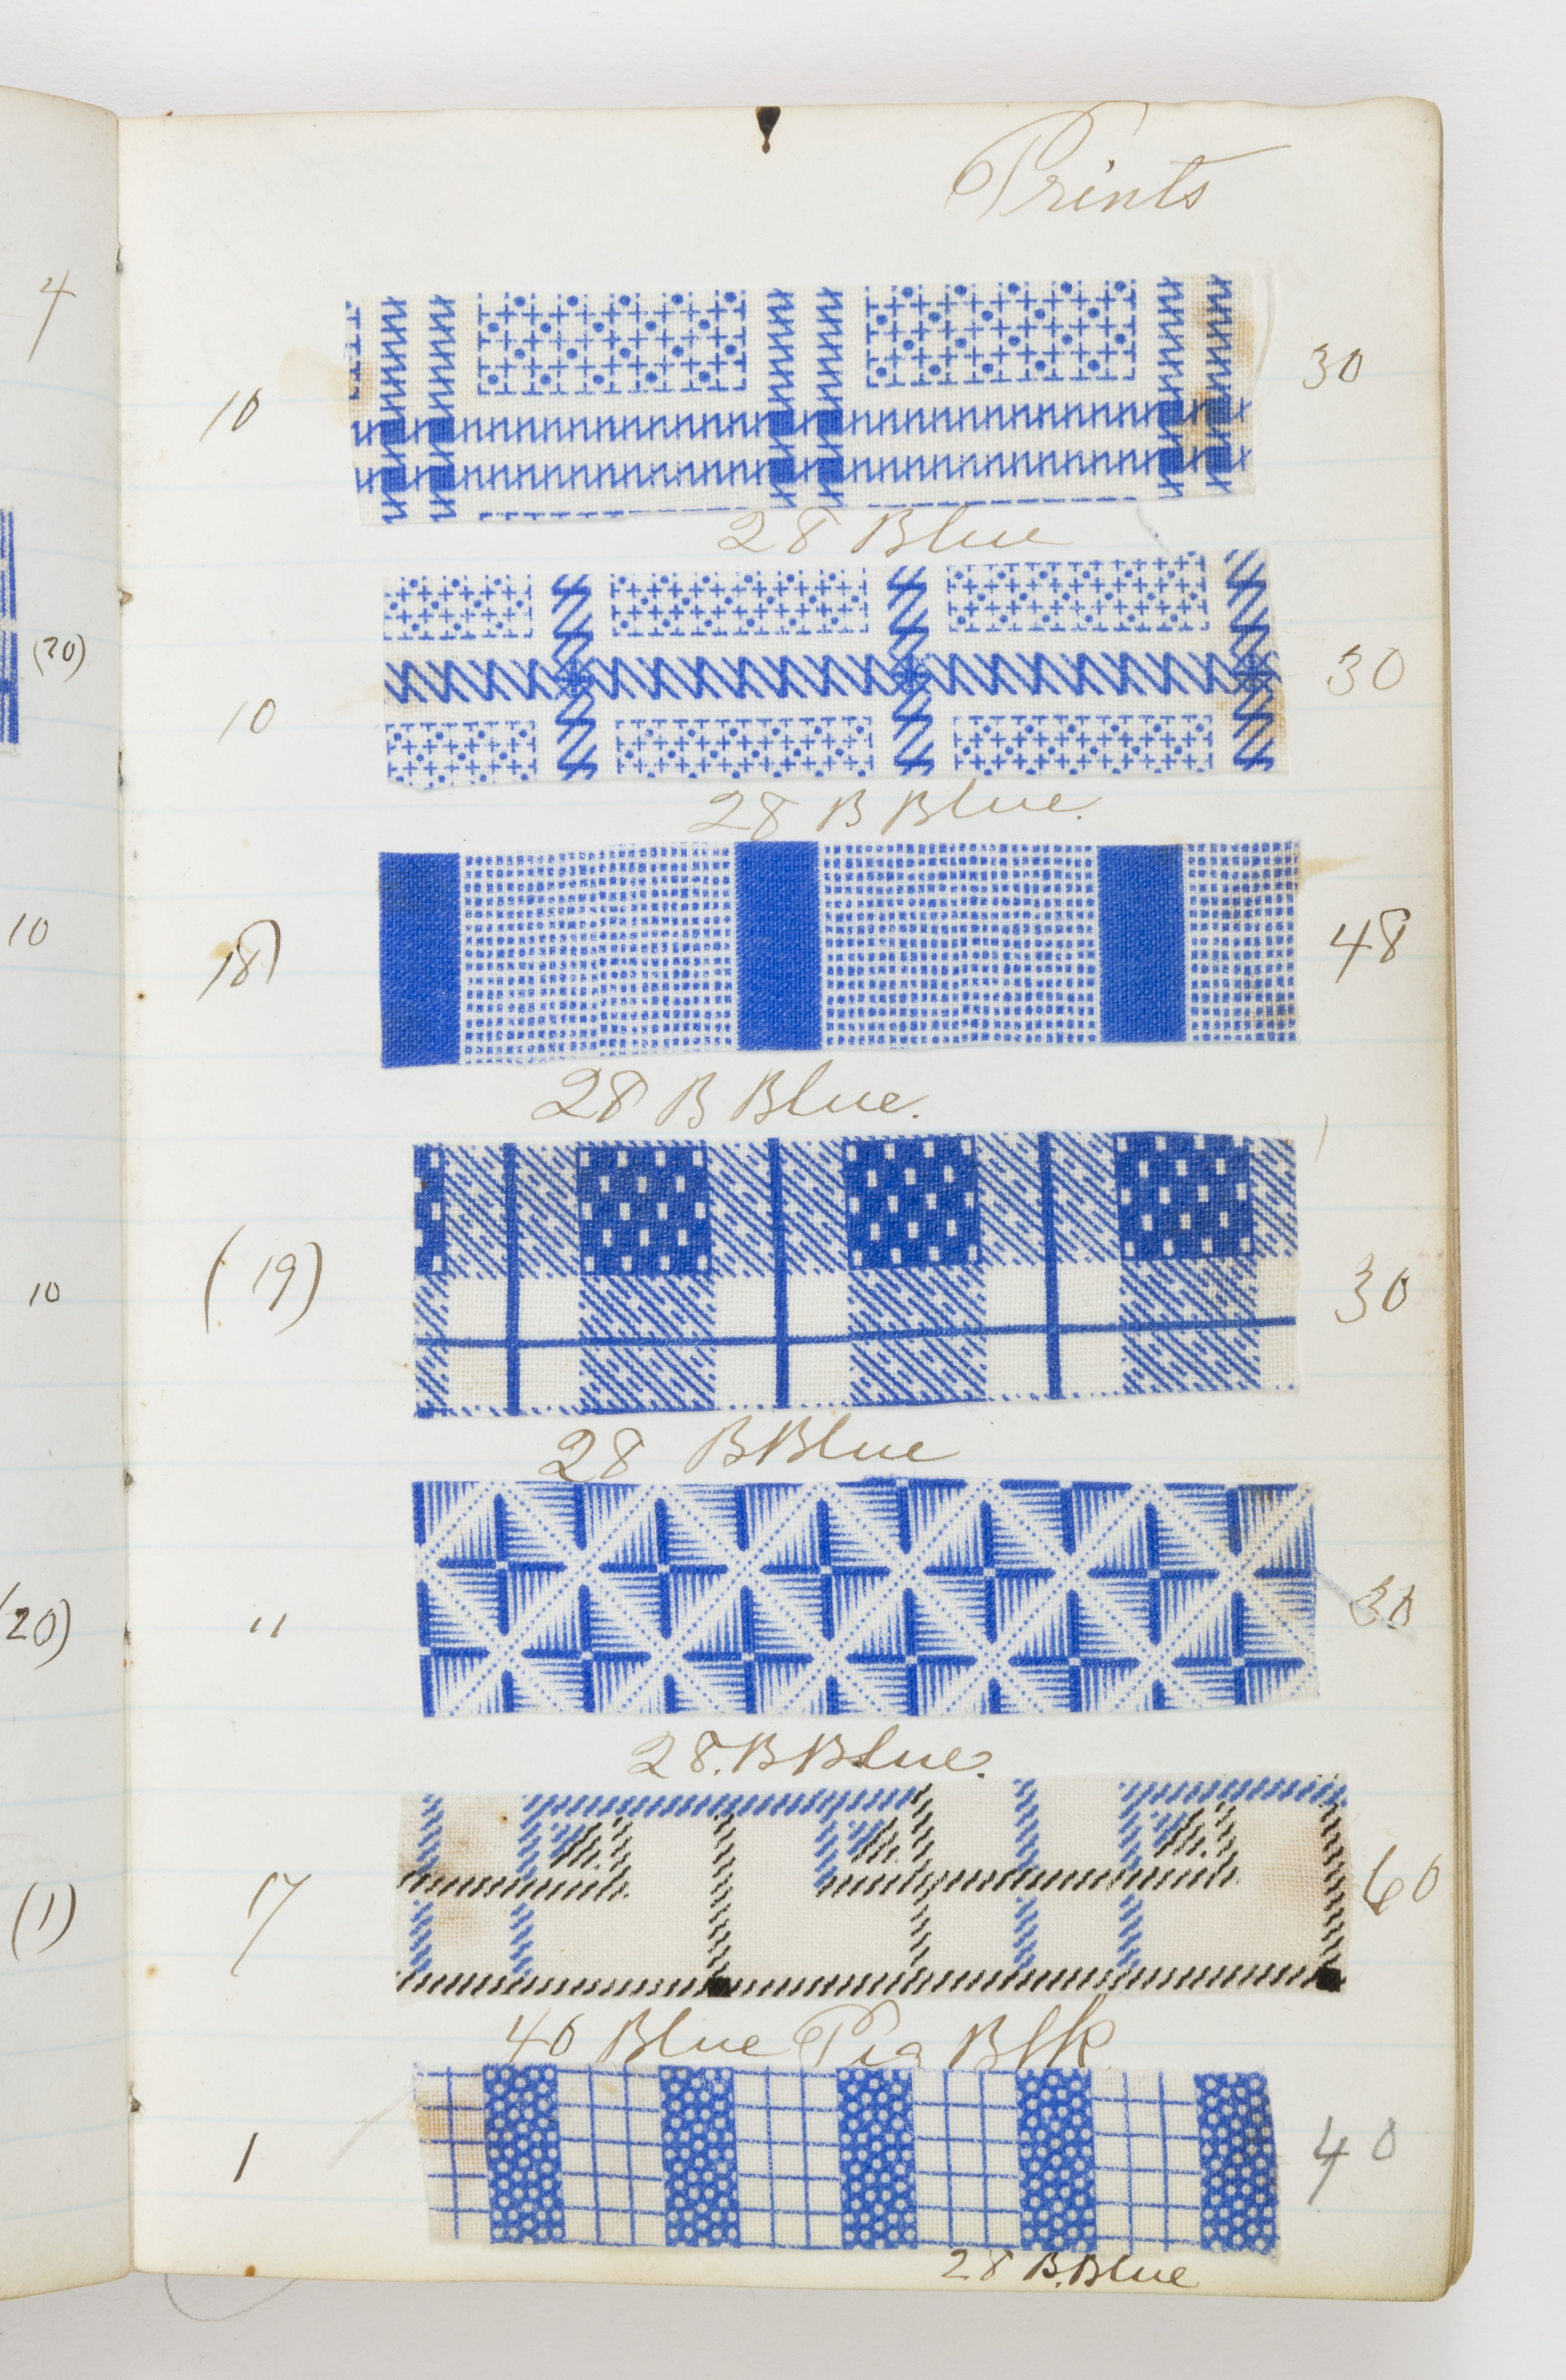 Prints
4
10 30
28 Blue
(20)
10 30
28 B Blue.
10
18) 48
28 B Blue.
10
(19) 30
28 BBlue
(20)
" 30
28. BBlue.
(1)
17 60
40 Blue Pig Blk
1 40
28 B.Blue